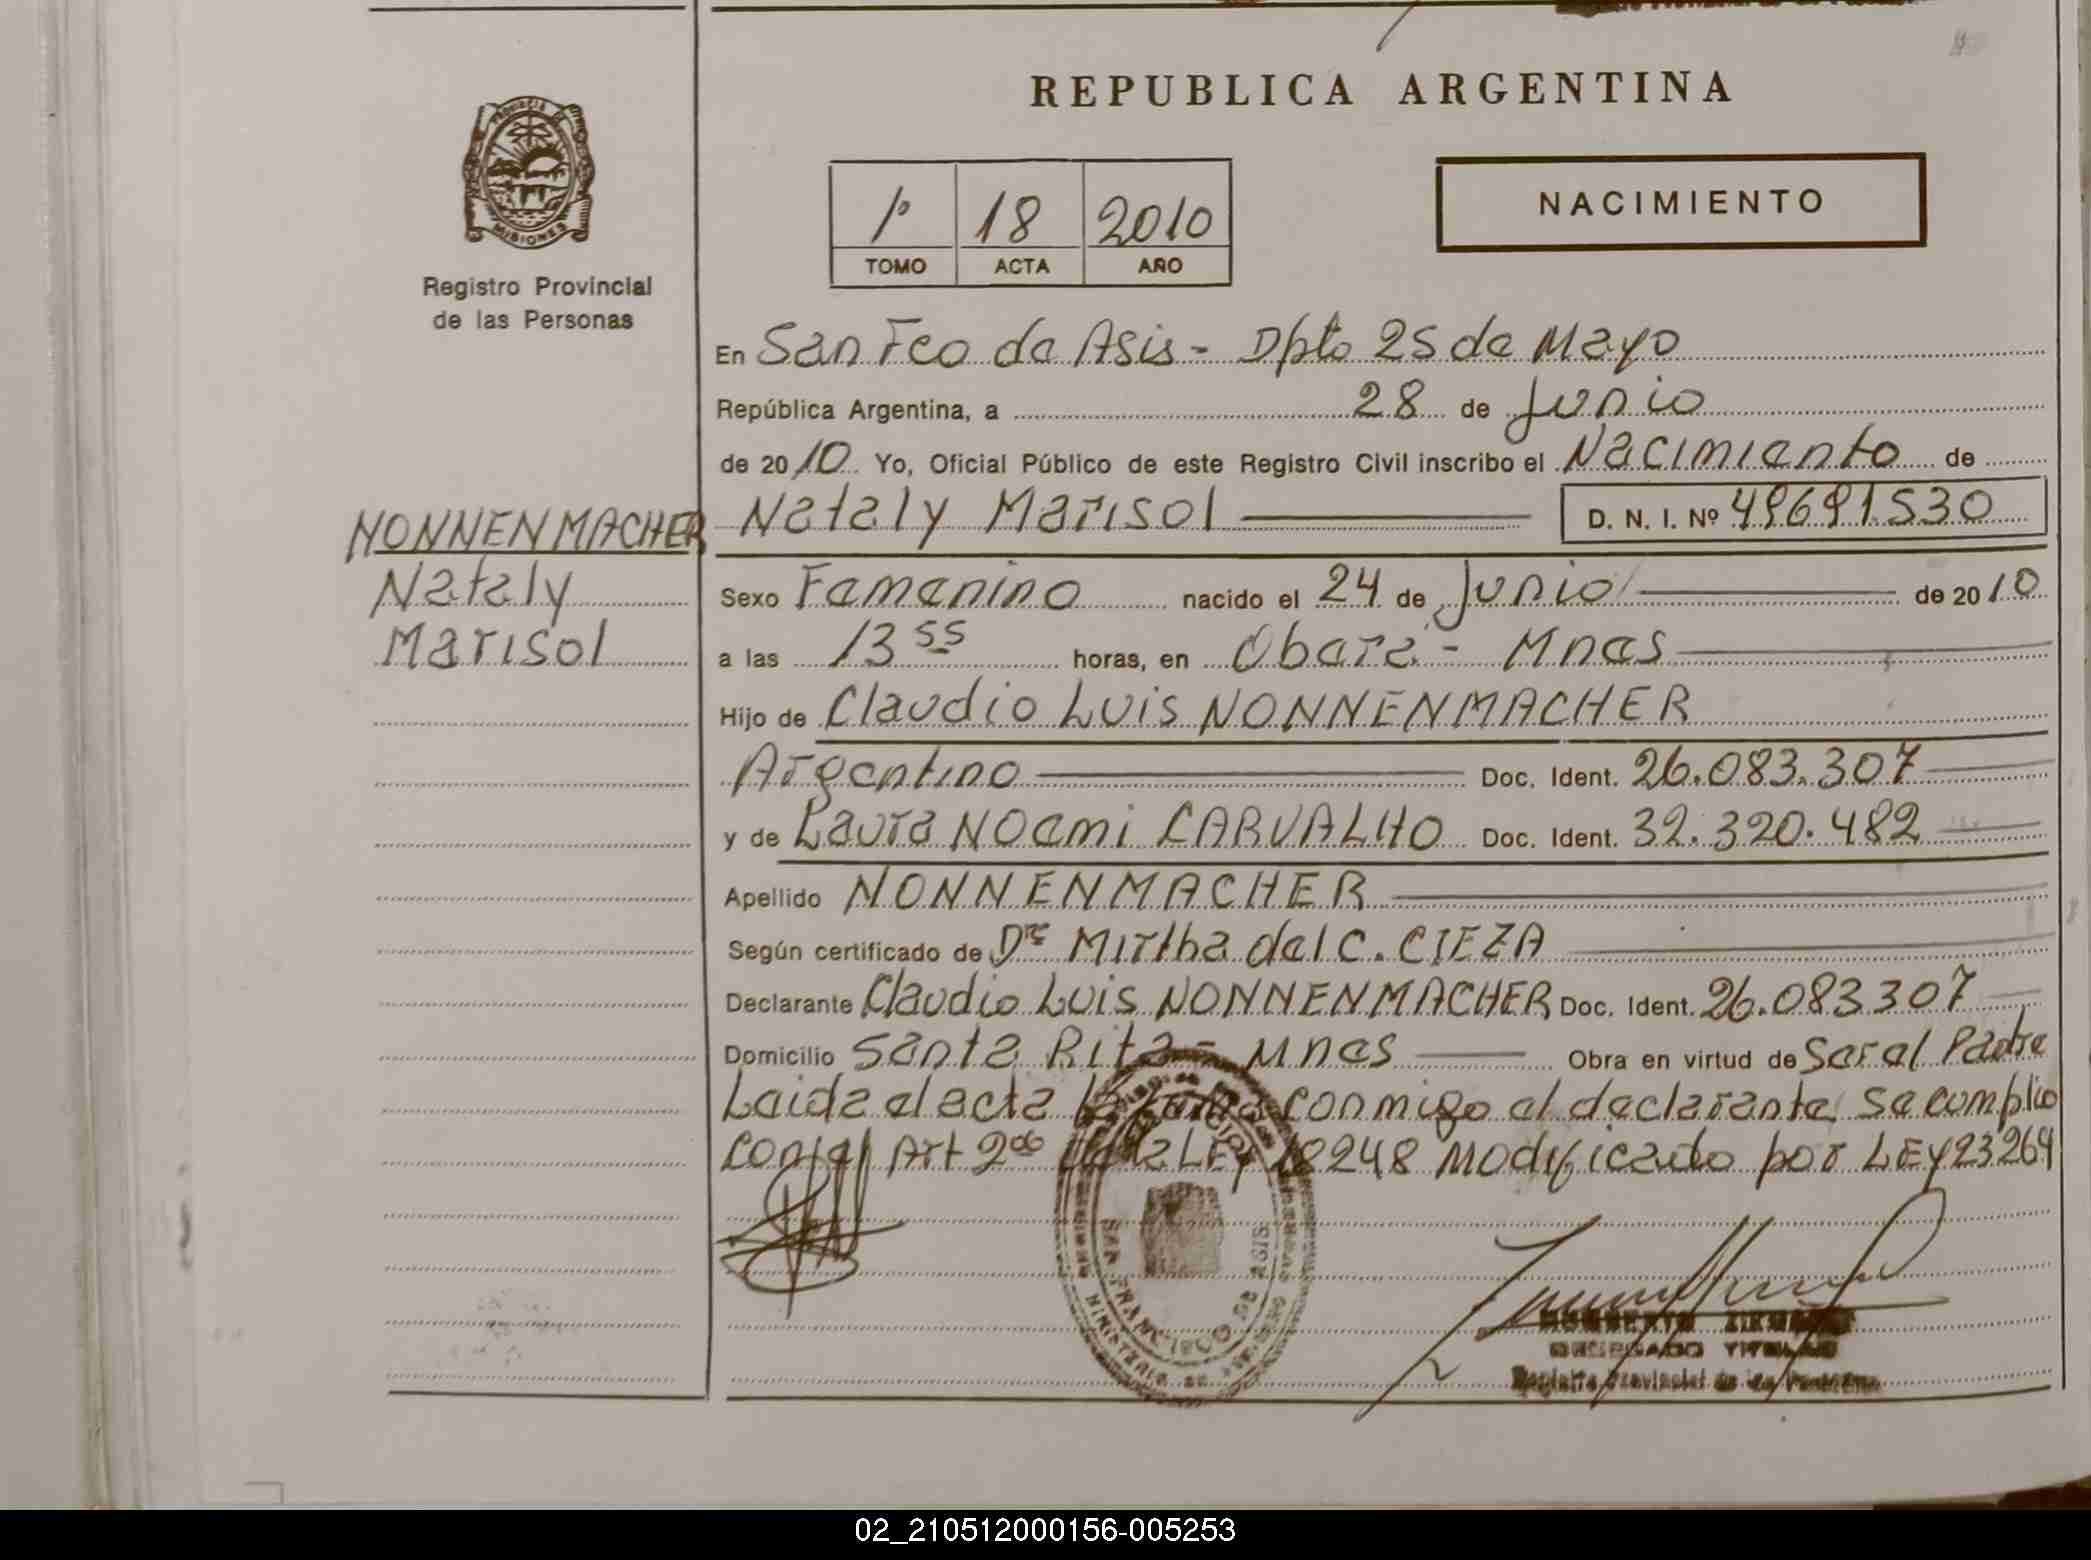 REPUBLICA ARGENTINA
PROVINCIA DE
MISIONES
Registro Provincial
de las Personas
1º 18 2010
TOMO ACTA AÑO
NACIMIENTO
En San Fco de Asis - Dpto 25 de Mayo
República Argentina, a 28 de Junio
de 2010 Yo, Oficial Público de este Registro Civil inscribo el Nacimiento de
NONNENMACHER
Nataly
Marisol
Nataly Marisol D. N. I. Nº 49691530
Sexo Femenino nacido el 24 de Junio de 2010
a las 13 55 horas, en Oberá - Mnes
Hijo de Claudio Luis NONNENMACHER
Argentino Doc. Ident. 26.083.307
y de Laura NOemi CARVALHO Doc. Ident. 32.320.482
Apellido NONNENMACHER
Según certificado de Dra Mirtha del C. CIEZA
Declarante Claudio Luis NONNENMACHER Doc. Ident. 26.083307
Domicilio Santa Rita - Mnes Obra en virtud de Ser el Padre
Leida el acta la firma conmigo el declarante, se cumplio
con el Art 2do de la LEY 18248 Modificado por LEY 23264
SAN FRANCISCO DE ASIS
MINISTERIO DE
DELEGADO TITULAR
Registro Provincial de las Personas
02_210512000156-005253